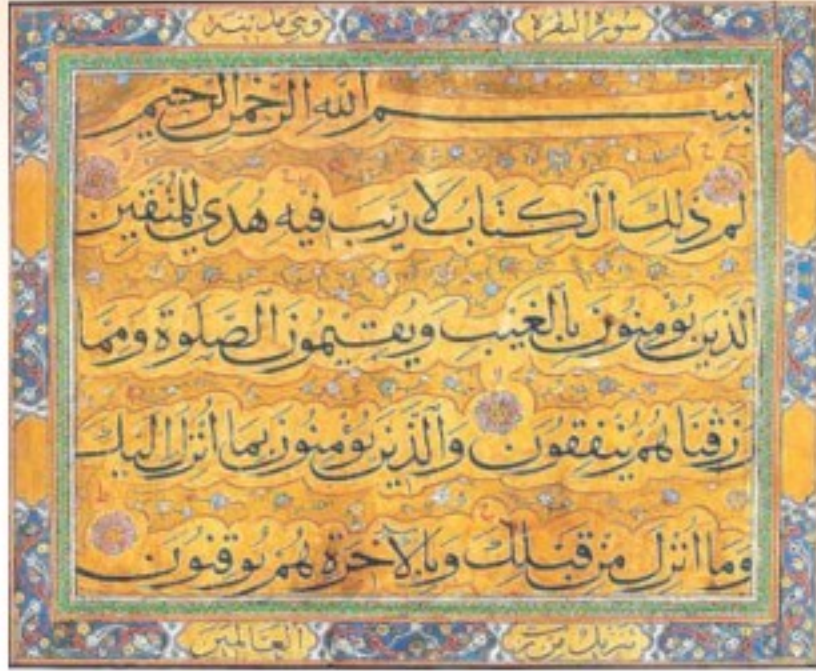 سورة البقرة وهي مدنية
بِسْمِ اللهِ الرَّحْمٰنِ الرَّحِيمِ
الم ذٰلِكَ الْكِتَابُ لَا رَيْبَ فِيهِ هُدًى لِلْمُتَّقِينَ
الَّذِينَ يُؤْمِنُونَ بِالْغَيْبِ وَيُقِيمُونَ الصَّلٰوةَ وَمِمَّا
رَزَقْنَاهُمْ يُنْفِقُونَ وَالَّذِينَ يُؤْمِنُونَ بِمَا أُنْزِلَ إِلَيْكَ
وَمَا أُنْزِلَ مِنْ قَبْلِكَ وَبِالْآخِرَةِ هُمْ يُوقِنُونَ
العالمين